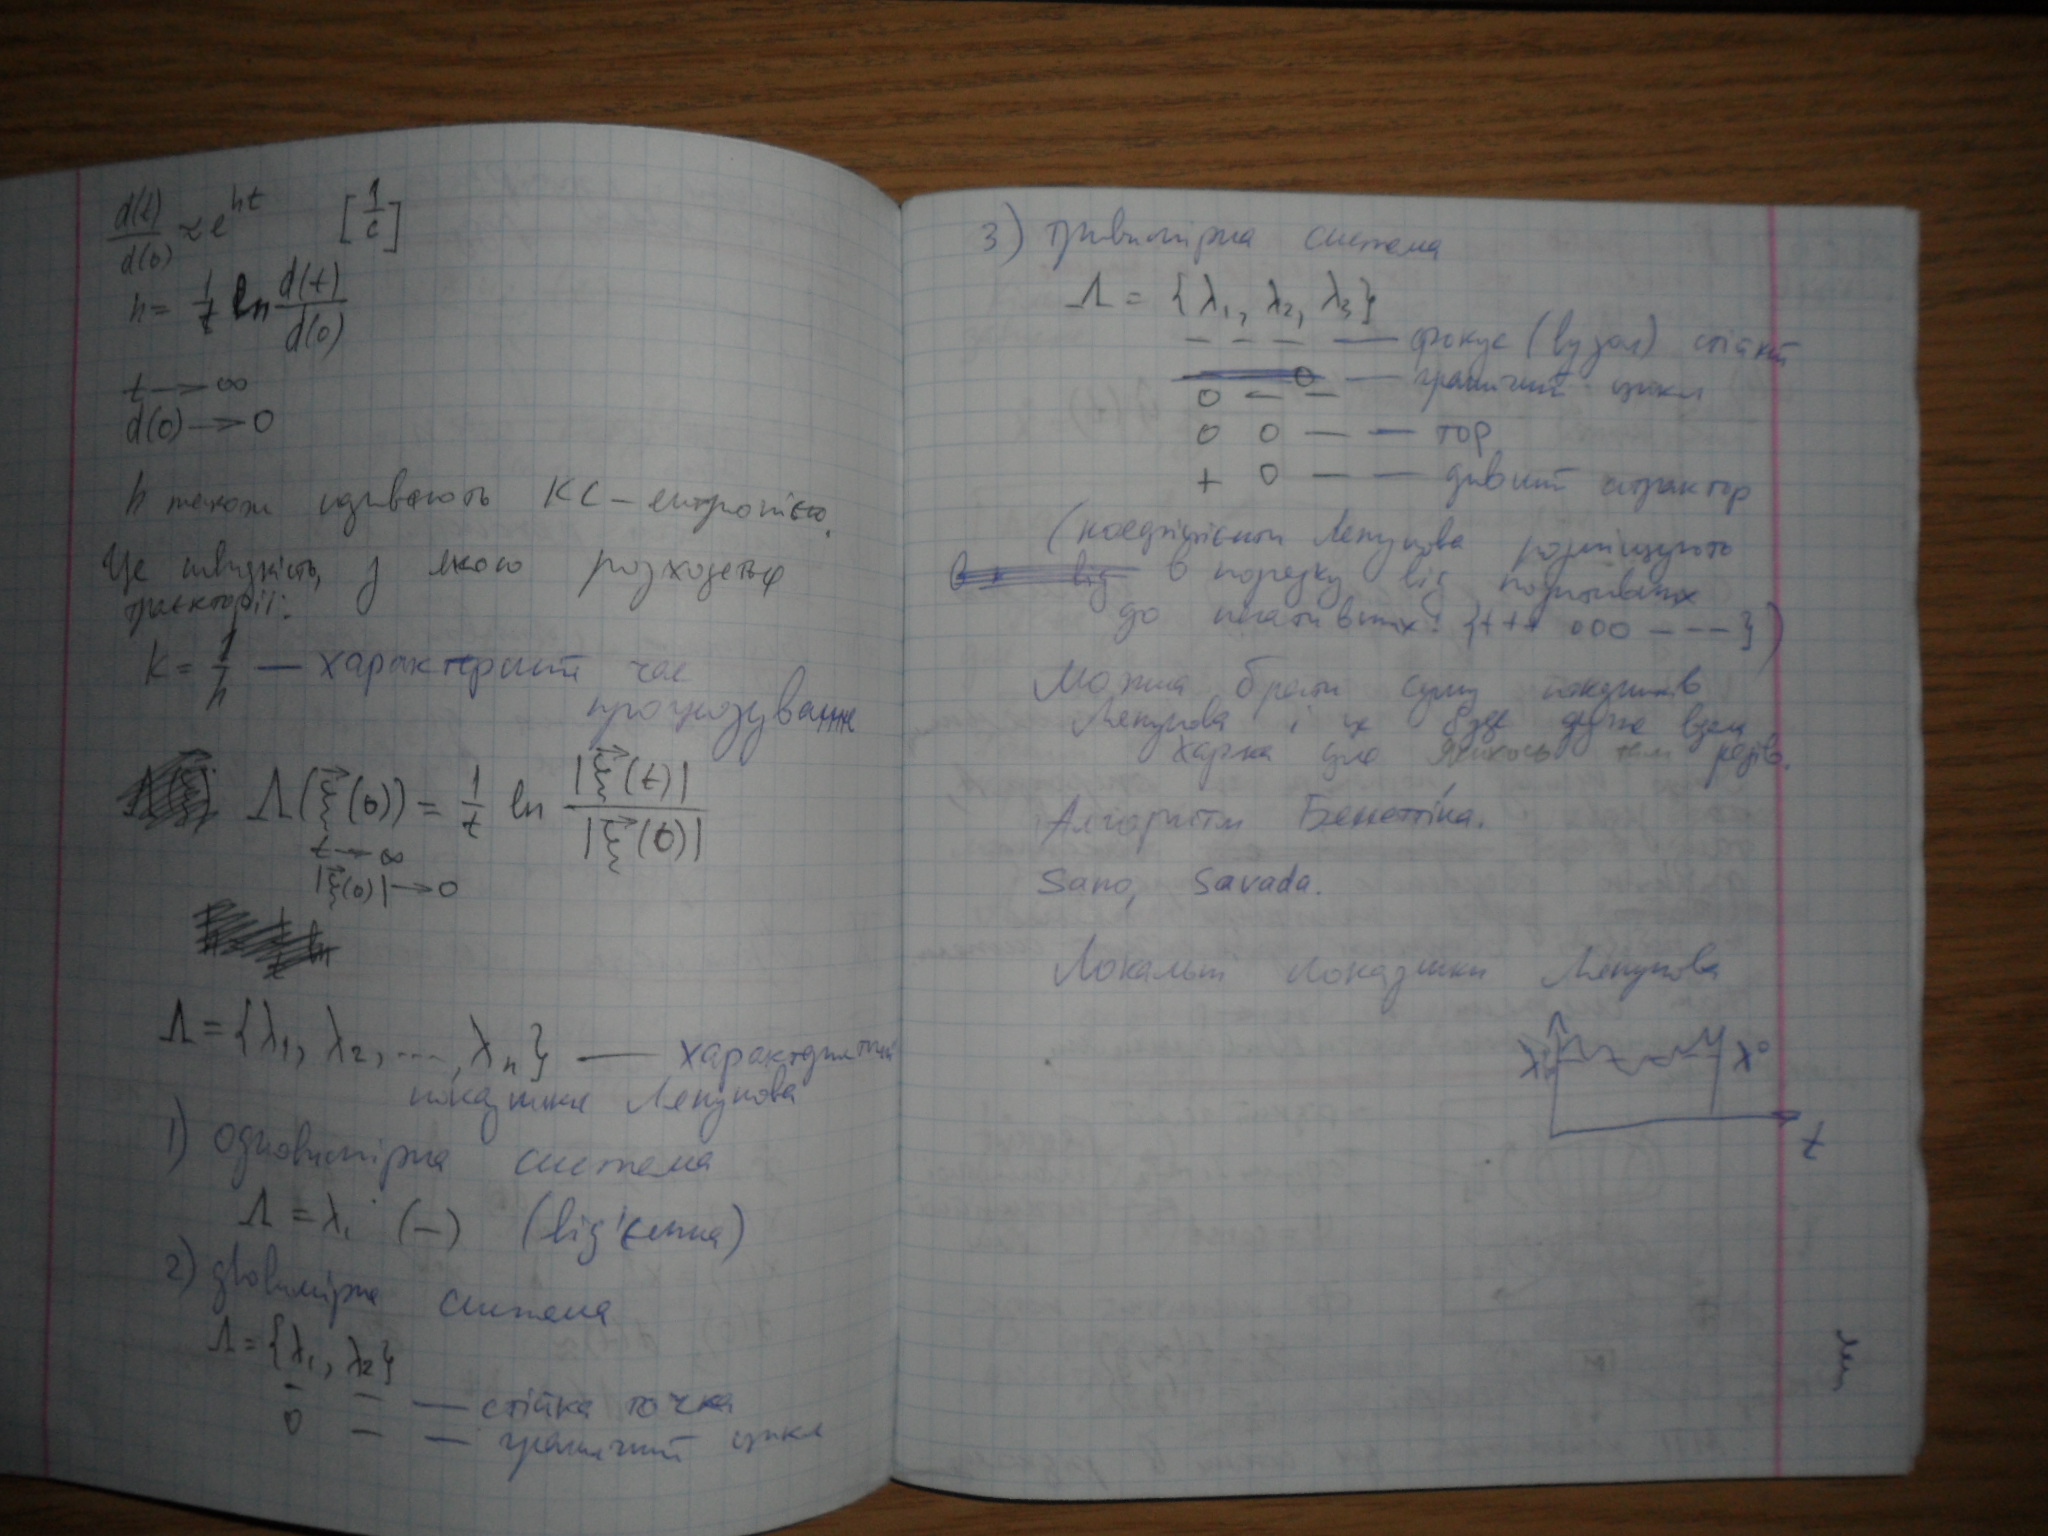 d(t)/d(0) ≈ e^{ht} [1/c]
h = 1/t ln d(t)/d(0)
t → ∞
d(0) → 0
h також називають КС – ентропією.
Це швидкість, з якою розходяться
траєкторії.
K = 1/h — характерний час
прогнозування
Λ(ξ⃗(0)) = 1/t ln |ξ⃗(t)|/|ξ⃗(0)|
t → ∞
|ξ⃗(0)| → 0
Λ = {λ₁, λ₂, ..., λₙ} — характеристичні
показники Ляпунова
1) одновимірна система
Λ = λ₁ (–) (від'ємна)
2) двовимірна система
Λ = {λ₁, λ₂}
– – — стійка точка
0 – — граничний цикл
3) тривимірна система
Λ = {λ₁, λ₂, λ₃}
– – – — фокус (вузол) стійкий
0 — граничний цикл
0 – –
0 0 – — тор
+ 0 – — дивний атрактор
(коефіцієнти Ляпунова розміщують
в порядку від позитивних
до негативних: {+++ 000 – – –})
Можна брати суму показників
Ляпунова і це буде дуже
хар-ка для якихось рядів.
Алгоритм Бенеттіна.
Sano, Savada.
Локальні показники Ляпунова
λ λ⁰
t
Ляп